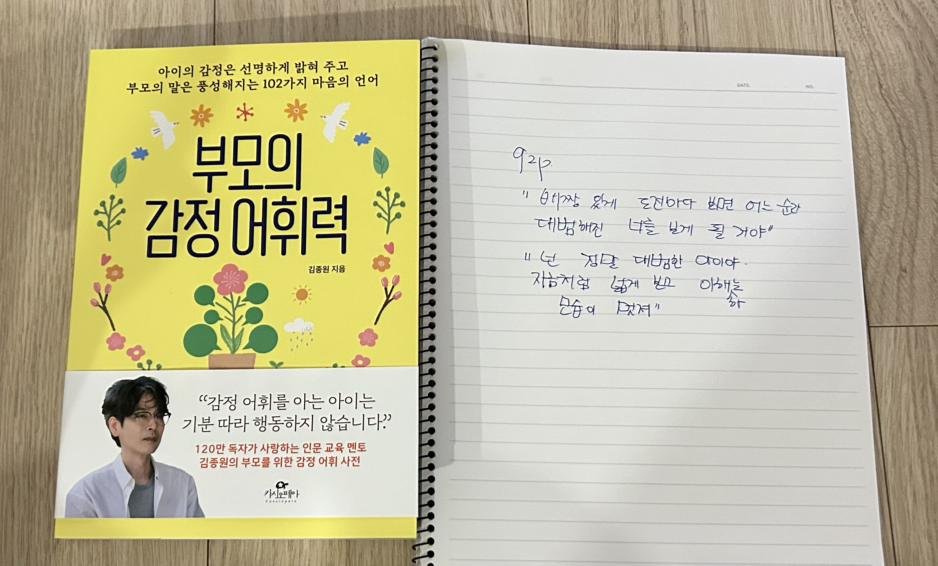 아이의 감정은 선명하게 밝혀 주고
부모의 말은 풍성해지는 102가지 마음의 언어
부모의
감정 어휘력
김종원 지음
“감정 어휘를 아는 아이는
기분 따라 행동하지 않습니다.”
120만 독자가 사랑하는 인문 교육 멘토
김종원의 부모를 위한 감정 어휘 사전
카시오페아
Cassiopeia
DATE.
NO.
92p
" 배짱 있게 도전하다 보면 어느 순간
대범해진 너를 보게 될 거야"
" 넌 정말 대범한 아이야.
지금처럼 넓게 보고 이해하는
모습이 멋져"